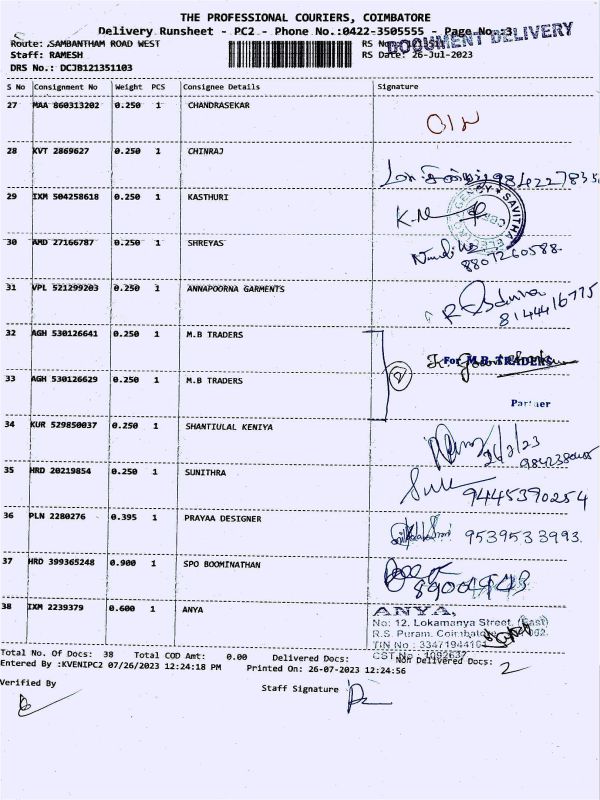 THE PROFESSIONAL COURIERS, COIMBATORE
Delivery Runsheet - PC2 - Phone No.:0422-3505555 - Page No.:3
DOCUMENT DELIVERY
Route: SAMBANTHAM ROAD WEST
RS No
Staff: RAMESH
RS Date: 26-Jul-2023
DRS No.: DCJB121351103
S No Consignment No Weight PCS Consignee Details Signature
27 MAA 860313202 0.250 1 CHANDRASEKAR
28 KVT 2869627 0.250 1 CHINRAJ
29 IXM 504258618 0.250 1 KASTHURI
30 AMD 27166787 0.250 1 SHREYAS
8807260588
31 VPL 521299203 0.250 1 ANNAPOORNA GARMENTS
8144416775
32 AGH 530126641 0.250 1 M.B TRADERS
For M.B. TRADERS
33 AGH 530126629 0.250 1 M.B TRADERS
Partner
34 KUR 529850037 0.250 1 SHANTIULAL KENIYA
35 HRD 20219854 0.250 1 SUNITHRA
9445390254
36 PLN 2280276 0.395 1 PRAYAA DESIGNER
9539533993
37 HRD 399365248 0.900 1 SPO BOOMINATHAN
38 IXM 2239379 0.600 1 ANYA
ANYA,
No: 12, Lokamanya Street, (East)
R.S. Puram, Coimbatore
TIN No : 33471944161
CST No : 1092637
Total No. Of Docs: 38 Total COD Amt: 0.00 Delivered Docs: Non Delivered Docs: 2
Entered By :KVENIPC2 07/26/2023 12:24:18 PM Printed On: 26-07-2023 12:24:56
Verified By
Staff Signature